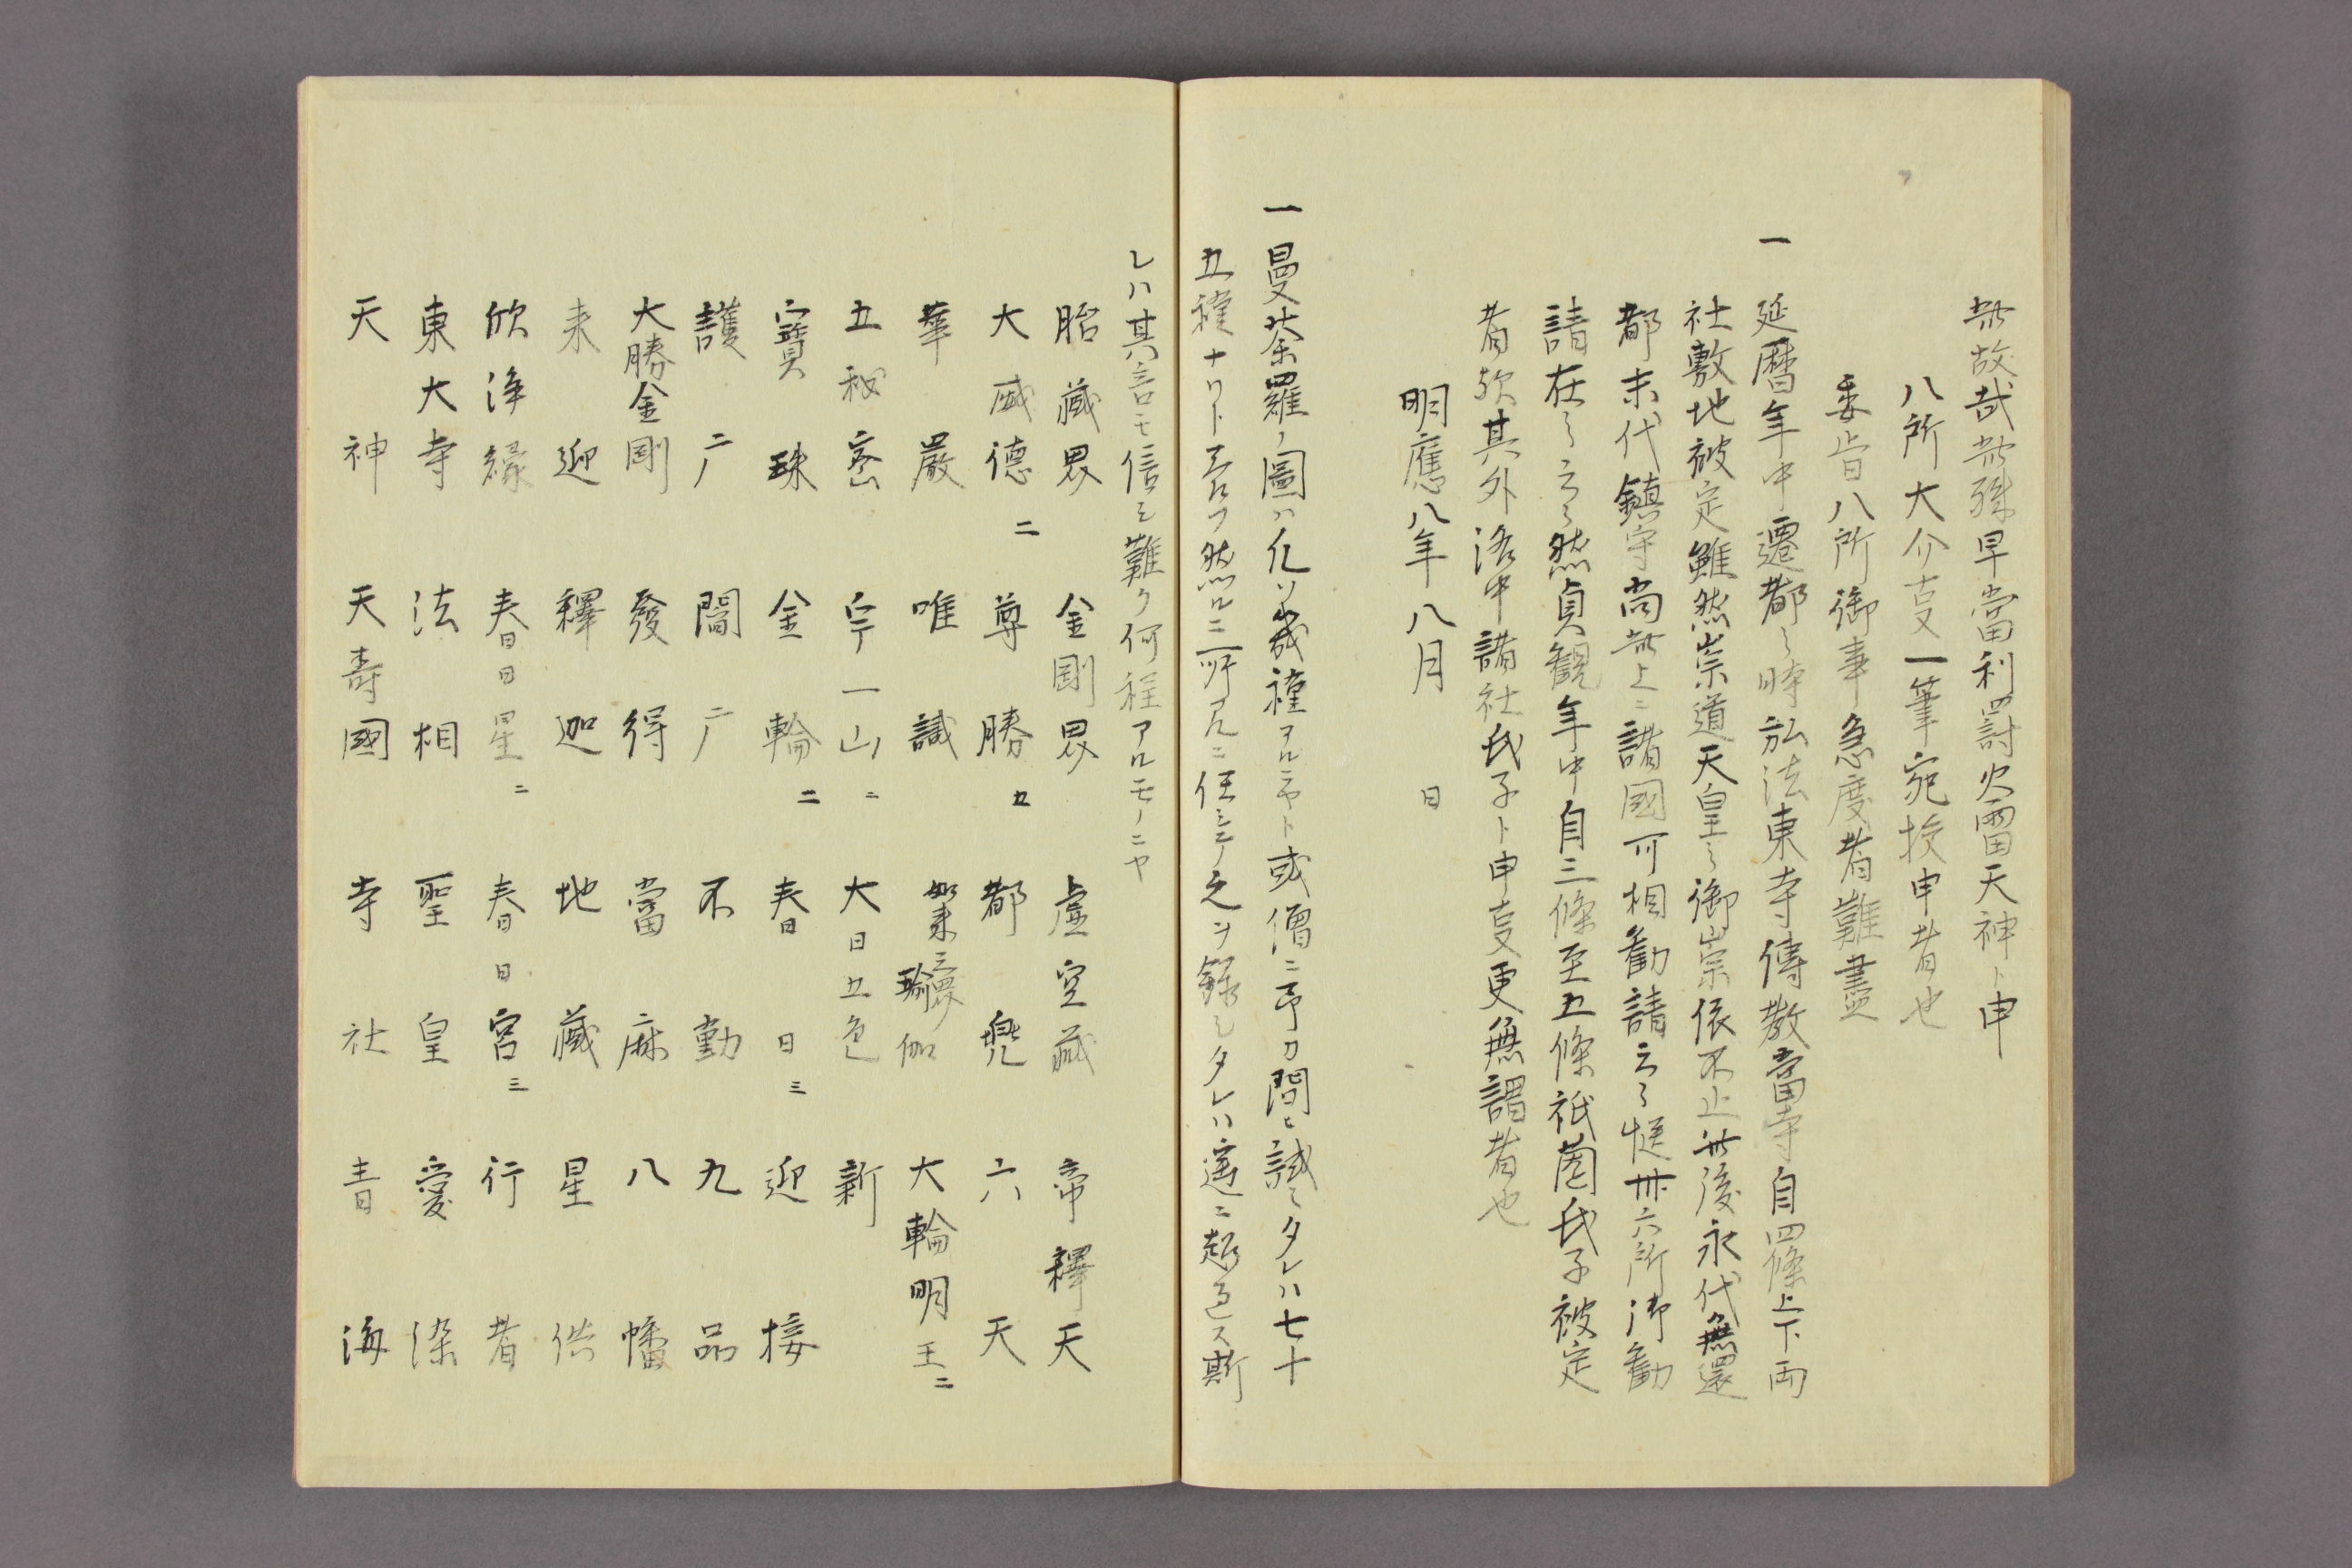 無故哉無孫早當利罸火雷天神ト申
八所大介㕝一筆宛挍申者也
委旨八所御事急度者難盡
一 延暦年中遷都之時弘法東寺傳教當寺自四條上下両
社敷地被定雖然崇道天皇之御崇依不止無後永代無還
都末代鎮守尚無上ニ諸國可相勸請云々惣丗六所御勸
請在之云々然貞観年中自三條至五條祇園氏子被定
者歟其外洛中諸社氏子ト申㕝更無謂者也
明應八年八月 日
一 曼荼羅ノ圖ハ凡ソ幾種アルニヤト或僧ニ予カ問ヒ試ミタレハ七十
五種ナリト云フ然ルニ二所見ニ任セテ之ヲ録シタレハ遙ニ超過ス斯
レハ其言モ信シ難ク何程アルモノニヤ
胎藏界 金剛界 虚空藏 帝釋天
大威德二 尊勝五 都兜 六天
華嚴 唯識 如来三夢 瑜伽 大輪明王二
五秘密 室一山二 大日五色 新
寳珠 金輪二 春日三 迎接
護广 閻广 不動 九品
大勝金剛 發得 當麻 八幡
来迎 釋迦 地藏 星供
欣浄縁 春日曰星二 春日曰宮三 行者
東大寺 法相 聖皇 愛染
天神 天壽國 寺社 青海